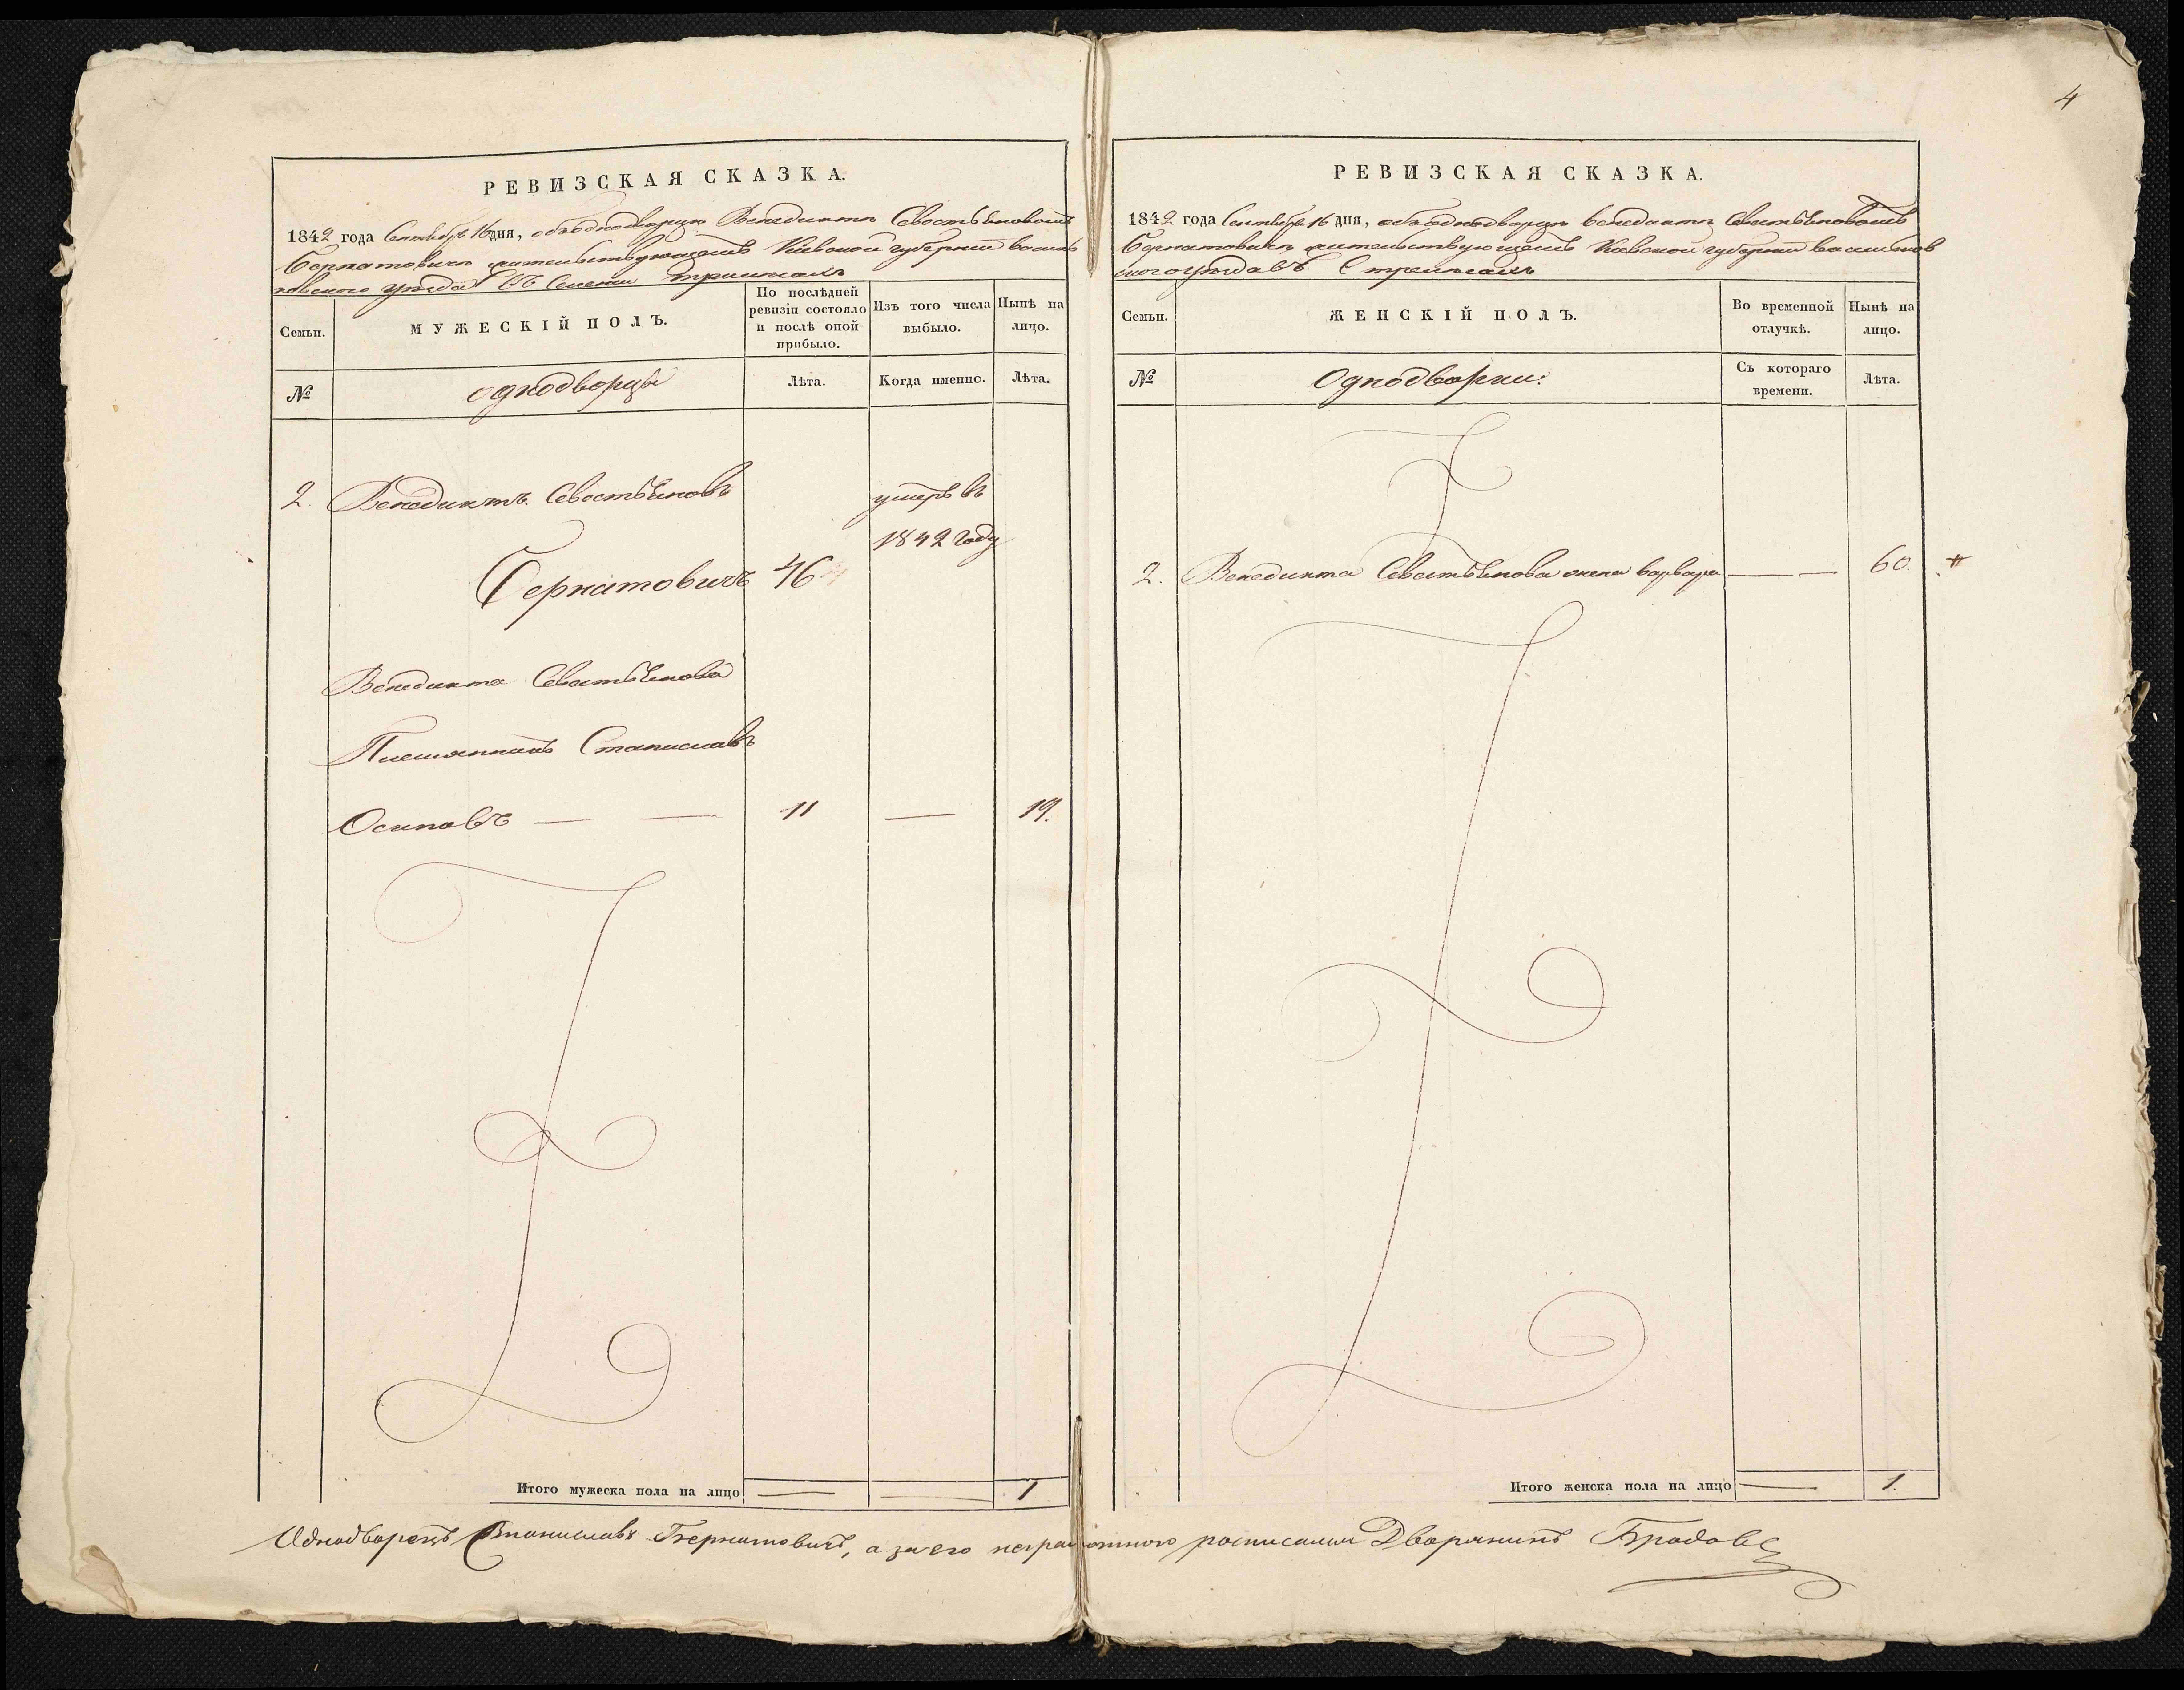 4
РЕВИЗСКАЯ СКАЗКА.
1842 года Сентября 16 дня, объ однодворцѣ Венедиктѣ Севостьяновомъ
Бернатовичѣ жительствующемъ Кіевской губерніи василь
ковскаго уѣзда въ Селеніи
Семьи.
МУЖЕСКІЙ ПОЛЪ.
По послѣдней
ревизіи состояло
и послѣ оной
прибыло.
Изъ того числа
выбыло.
Нынѣ на
лицо.
№
однодворцы
Лѣта.
Когда именно.
Лѣта.
2. Венедиктъ Севостьяновъ умеръ въ
1842 году
Бернатовичъ 46
Венедикта Севостьянова
Племянникъ Станиславъ
Осиповъ — — 11 — 19.
Итого мужеска пола на лицо — — 1
РЕВИЗСКАЯ СКАЗКА.
1842 года Сентября 16 дня, объ однодворцѣ Венедиктѣ Севостьяновомъ
Бернатовичѣ жительствующемъ Кіевской губерніи васильков
скаго уѣзда въ
Семьи.
ЖЕНСКІЙ ПОЛЪ.
Во временной
отлучкѣ.
Нынѣ на
лицо.
№
Однодворки:
Съ котораго
времени.
Лѣта.
2. Венедикта Севостьянова жена варвара — — 60.
Итого женска пола на лицо — 1.
Однодворецъ Станиславъ Бернатовичъ, а за его неграмотного росписался Дворянинъ